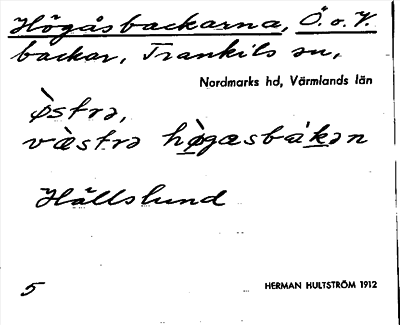 Högåsbackarna, Ö. o. V.
backar, Trankils sn,
Nordmarks hd, Värmlands län
ø̀strə,
væ̀strə hø̀gasbákən
Hällslund
5
HERMAN HULTSTRÖM 1912